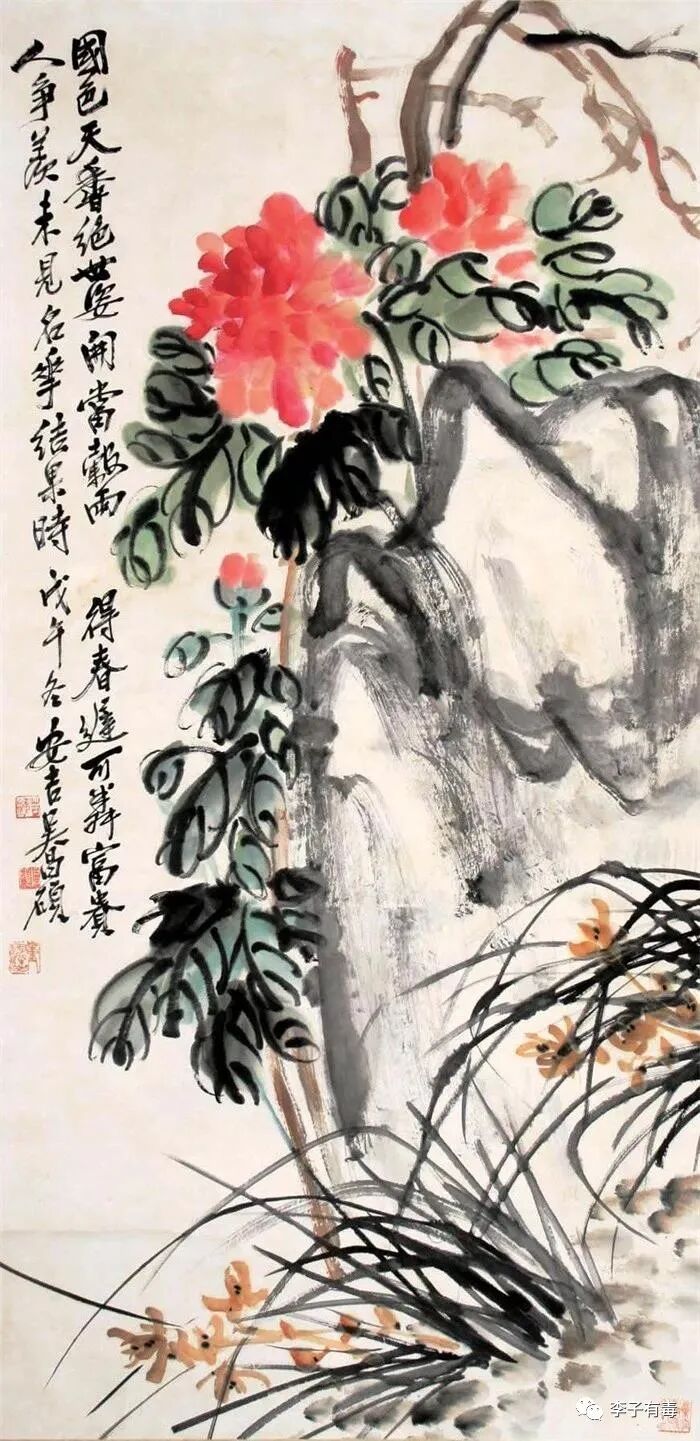 國色天香絕世姿開當穀雨
得春遲可雜富貴
人爭羨未見名華結果時戊午冬安吉吳昌碩
李子有毒